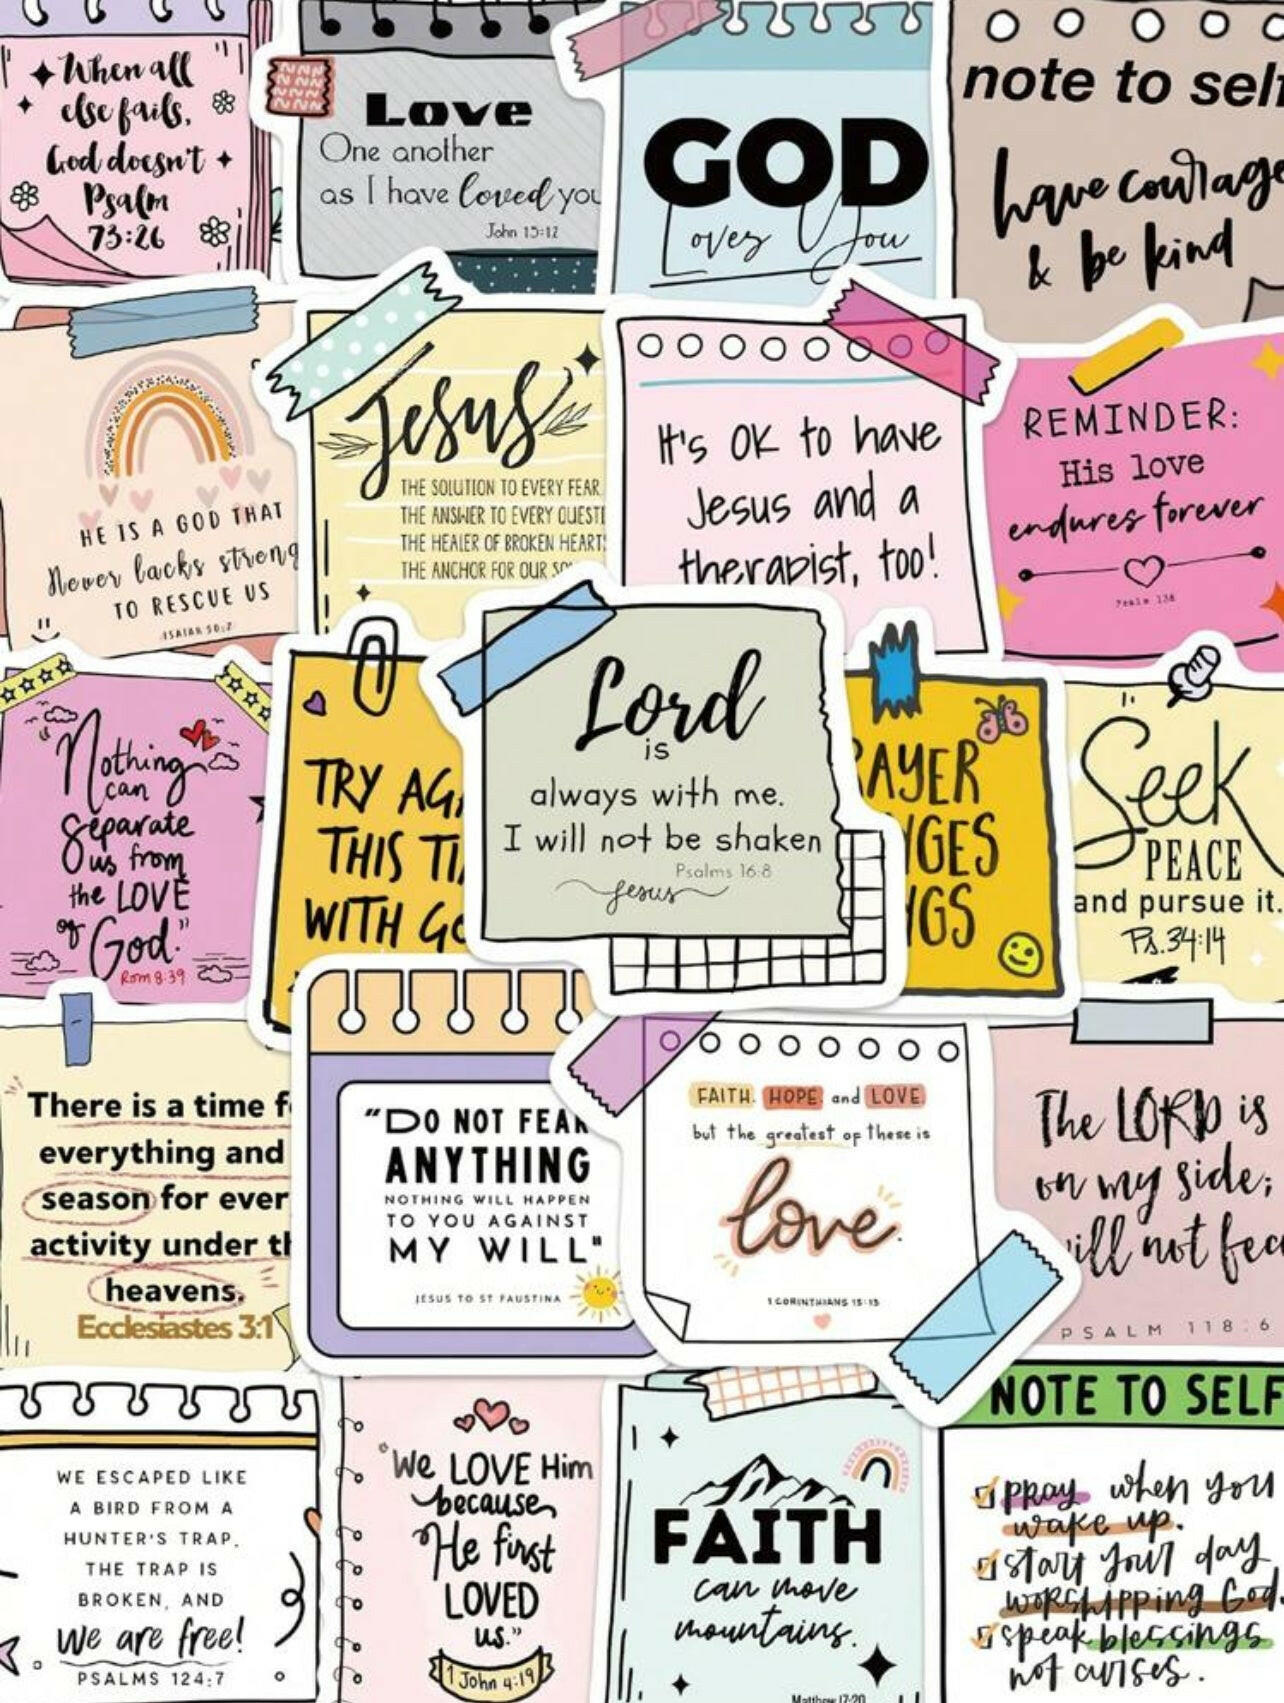 When all
else fails,
God doesn't
Psalm
73:26
Love
One another
as I have loved you
John 15:12
GOD
Loves You
note to self
have courage
& be kind
HE IS A GOD THAT
Never lacks streng
TO RESCUE US
ISAIAH 50:2
Jesus
THE SOLUTION TO EVERY FEAR
THE ANSWER TO EVERY QUESTI
THE HEALER OF BROKEN HEARTS
THE ANCHOR FOR OUR SO
It's OK to have
Jesus and a
therapist, too!
REMINDER:
His love
endures forever
Psalm 136
"Nothing
can
separate
us from
the LOVE
of God."
Rom 8:39
TRY AGA
THIS TI
WITH GO
Lord
is
always with me.
I will not be shaken
Psalms 16:8
Jesus
RAYER
NGES
NGS
Seek
PEACE
and pursue it.
Ps. 34:14
There is a time f
everything and
season for ever
activity under th
heavens.
Ecclesiastes 3:1
"DO NOT FEAR
ANYTHING
NOTHING WILL HAPPEN
TO YOU AGAINST
MY WILL"
JESUS TO ST FAUSTINA
FAITH. HOPE and LOVE
but the greatest of these is
love.
1 CORINTHIANS 13:13
The LORD is
on my side;
will not fea
PSALM 118:6
WE ESCAPED LIKE
A BIRD FROM A
HUNTER'S TRAP.
THE TRAP IS
BROKEN, AND
We are free!
PSALMS 124:7
"We LOVE Him
because
He first
LOVED
us."
1 John 4:19
FAITH
can move
mountains.
Matthew 17:20
NOTE TO SELF
pray when you
wake up.
start your day
worshipping God.
speak blessings
not curses.